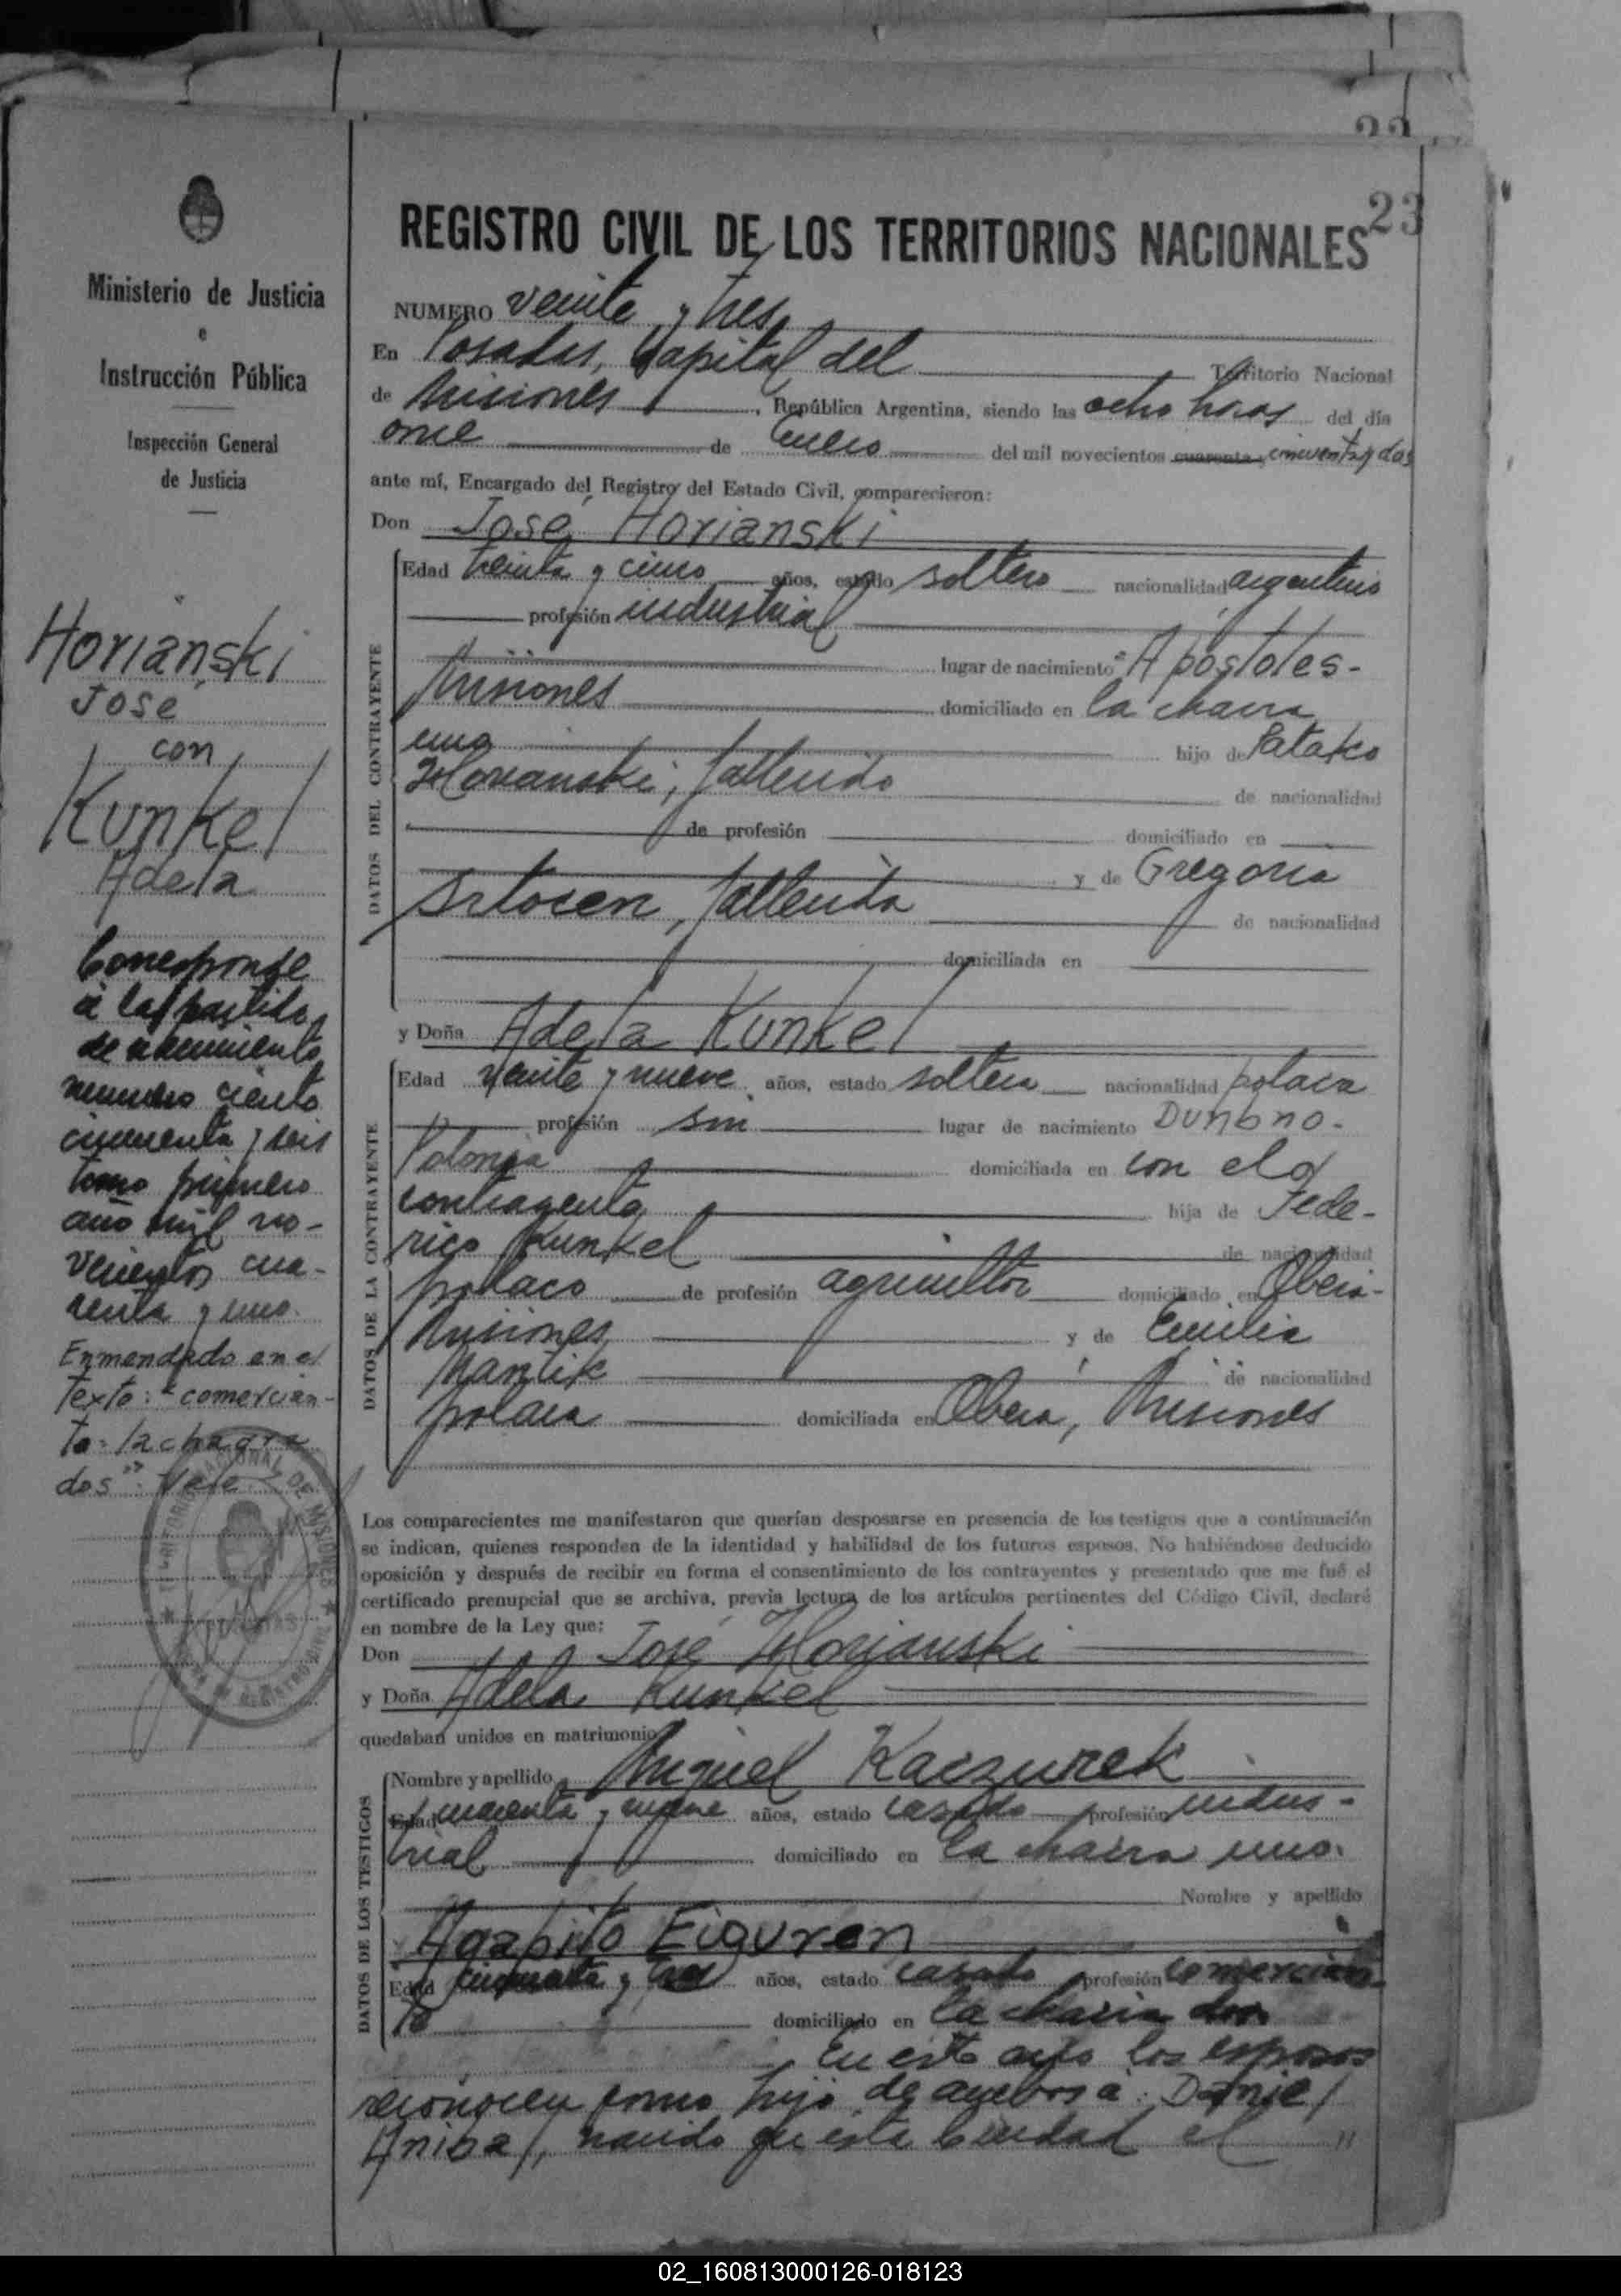 22
23
Ministerio de Justicia
e
Instrucción Pública
Inspección General
de Justicia
Horianski
José
con
Kunkel
Adela
Corresponde
a la partida
de nacimiento
numero ciento
cincuenta y seis
tomo primero
año mil no-
vecientos cua-
renta y uno.
Enmendado en el
Texto: "comercian-
te- la chacra
dos": Vale
TERRITORIO NACIONAL DE MISIONES
REGISTRO CIVIL DE LOS TERRITORIOS NACIONALES
NUMERO veinte y tres
En Posadas, Capital del Territorio Nacional
de Misiones, República Argentina, siendo las ocho horas del día
once de Enero del mil novecientos cuarenta y cincuenta y dos
ante mí, Encargado del Registro del Estado Civil, comparecieron:
Don José Horianski
DATOS DEL CONTRAYENTE
Edad treinta y cinco años, estado soltero nacionalidad argentino
profesión industrial
lugar de nacimiento Apóstoles-
Misiones domiciliado en la chacra
uno hijo de
Horianski, fallecido de nacionalidad
de profesión domiciliado en
y de Gregoria
fallecida de nacionalidad
domiciliada en
y Doña Adela Kunkel
DATOS DE LA CONTRAYENTE
Edad veinte y nueve años, estado soltera nacionalidad polaca
profesión sin lugar de nacimiento Dunbno-
Polonia domiciliada en con el
contrayente hija de Fede-
rico Kunkel de nacionalidad
polaco de profesión agricultor domiciliado en Oberá-
Misiones y de Emilia
Mantik de nacionalidad
polaca domiciliada en Oberá, Misiones
Los comparecientes me manifestaron que querían desposarse en presencia de los testigos que a continuación
se indican, quienes responden de la identidad y habilidad de los futuros esposos. No habiéndose deducido
oposición y después de recibir en forma el consentimiento de los contrayentes y presentado que me fué el
certificado prenupcial que se archiva, previa lectura de los artículos pertinentes del Código Civil, declaré
en nombre de la Ley que:
Don José Horianski
y Doña Adela Kunkel
quedaban unidos en matrimonio
DATOS DE LOS TESTIGOS
Nombre y apellido Miguel Kaczurek
Edad cuarenta y nueve años, estado casado profesión indus-
trial domiciliado en la chacra uno.
Nombre y apellido
Agapito Eiguren
Edad cincuenta y tres años, estado casado profesión comercian-
te domiciliado en la chacra dos
En este acto los esposos
reconocen como hijo de ambos a: Daniel
Anibal, nacido en esta Ciudad el "
02_160813000126-018123